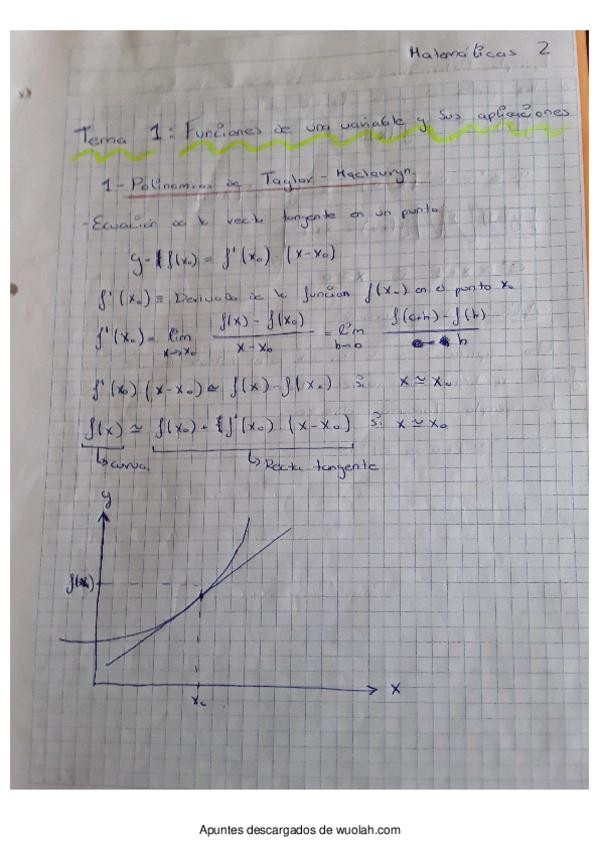 Matemáticas 2
Tema 1: Funciones de una variable y sus aplicaciones
1- Polinomios de Taylor - Maclauryn
- Ecuación de la recta tangente en un punto
y - f(x₀) = f'(x₀) · (x-x₀)
f'(x₀) ≡ Derivada de la función f(x₀) en el punto x₀
f'(x₀) = lim x→x₀ (f(x) - f(x₀))/(x - x₀) = lim h→0 (f(c+h) - f(h))/h
f'(x₀) (x-x₀) ≃ f(x) - f(x₀) si x ≃ x₀
f(x) ≃ f(x₀) + f'(x₀) (x-x₀) si x ≃ x₀
↳ curva ↳ Recta tangente
y
f(x₀)
x
x₀
Apuntes descargados de wuolah.com